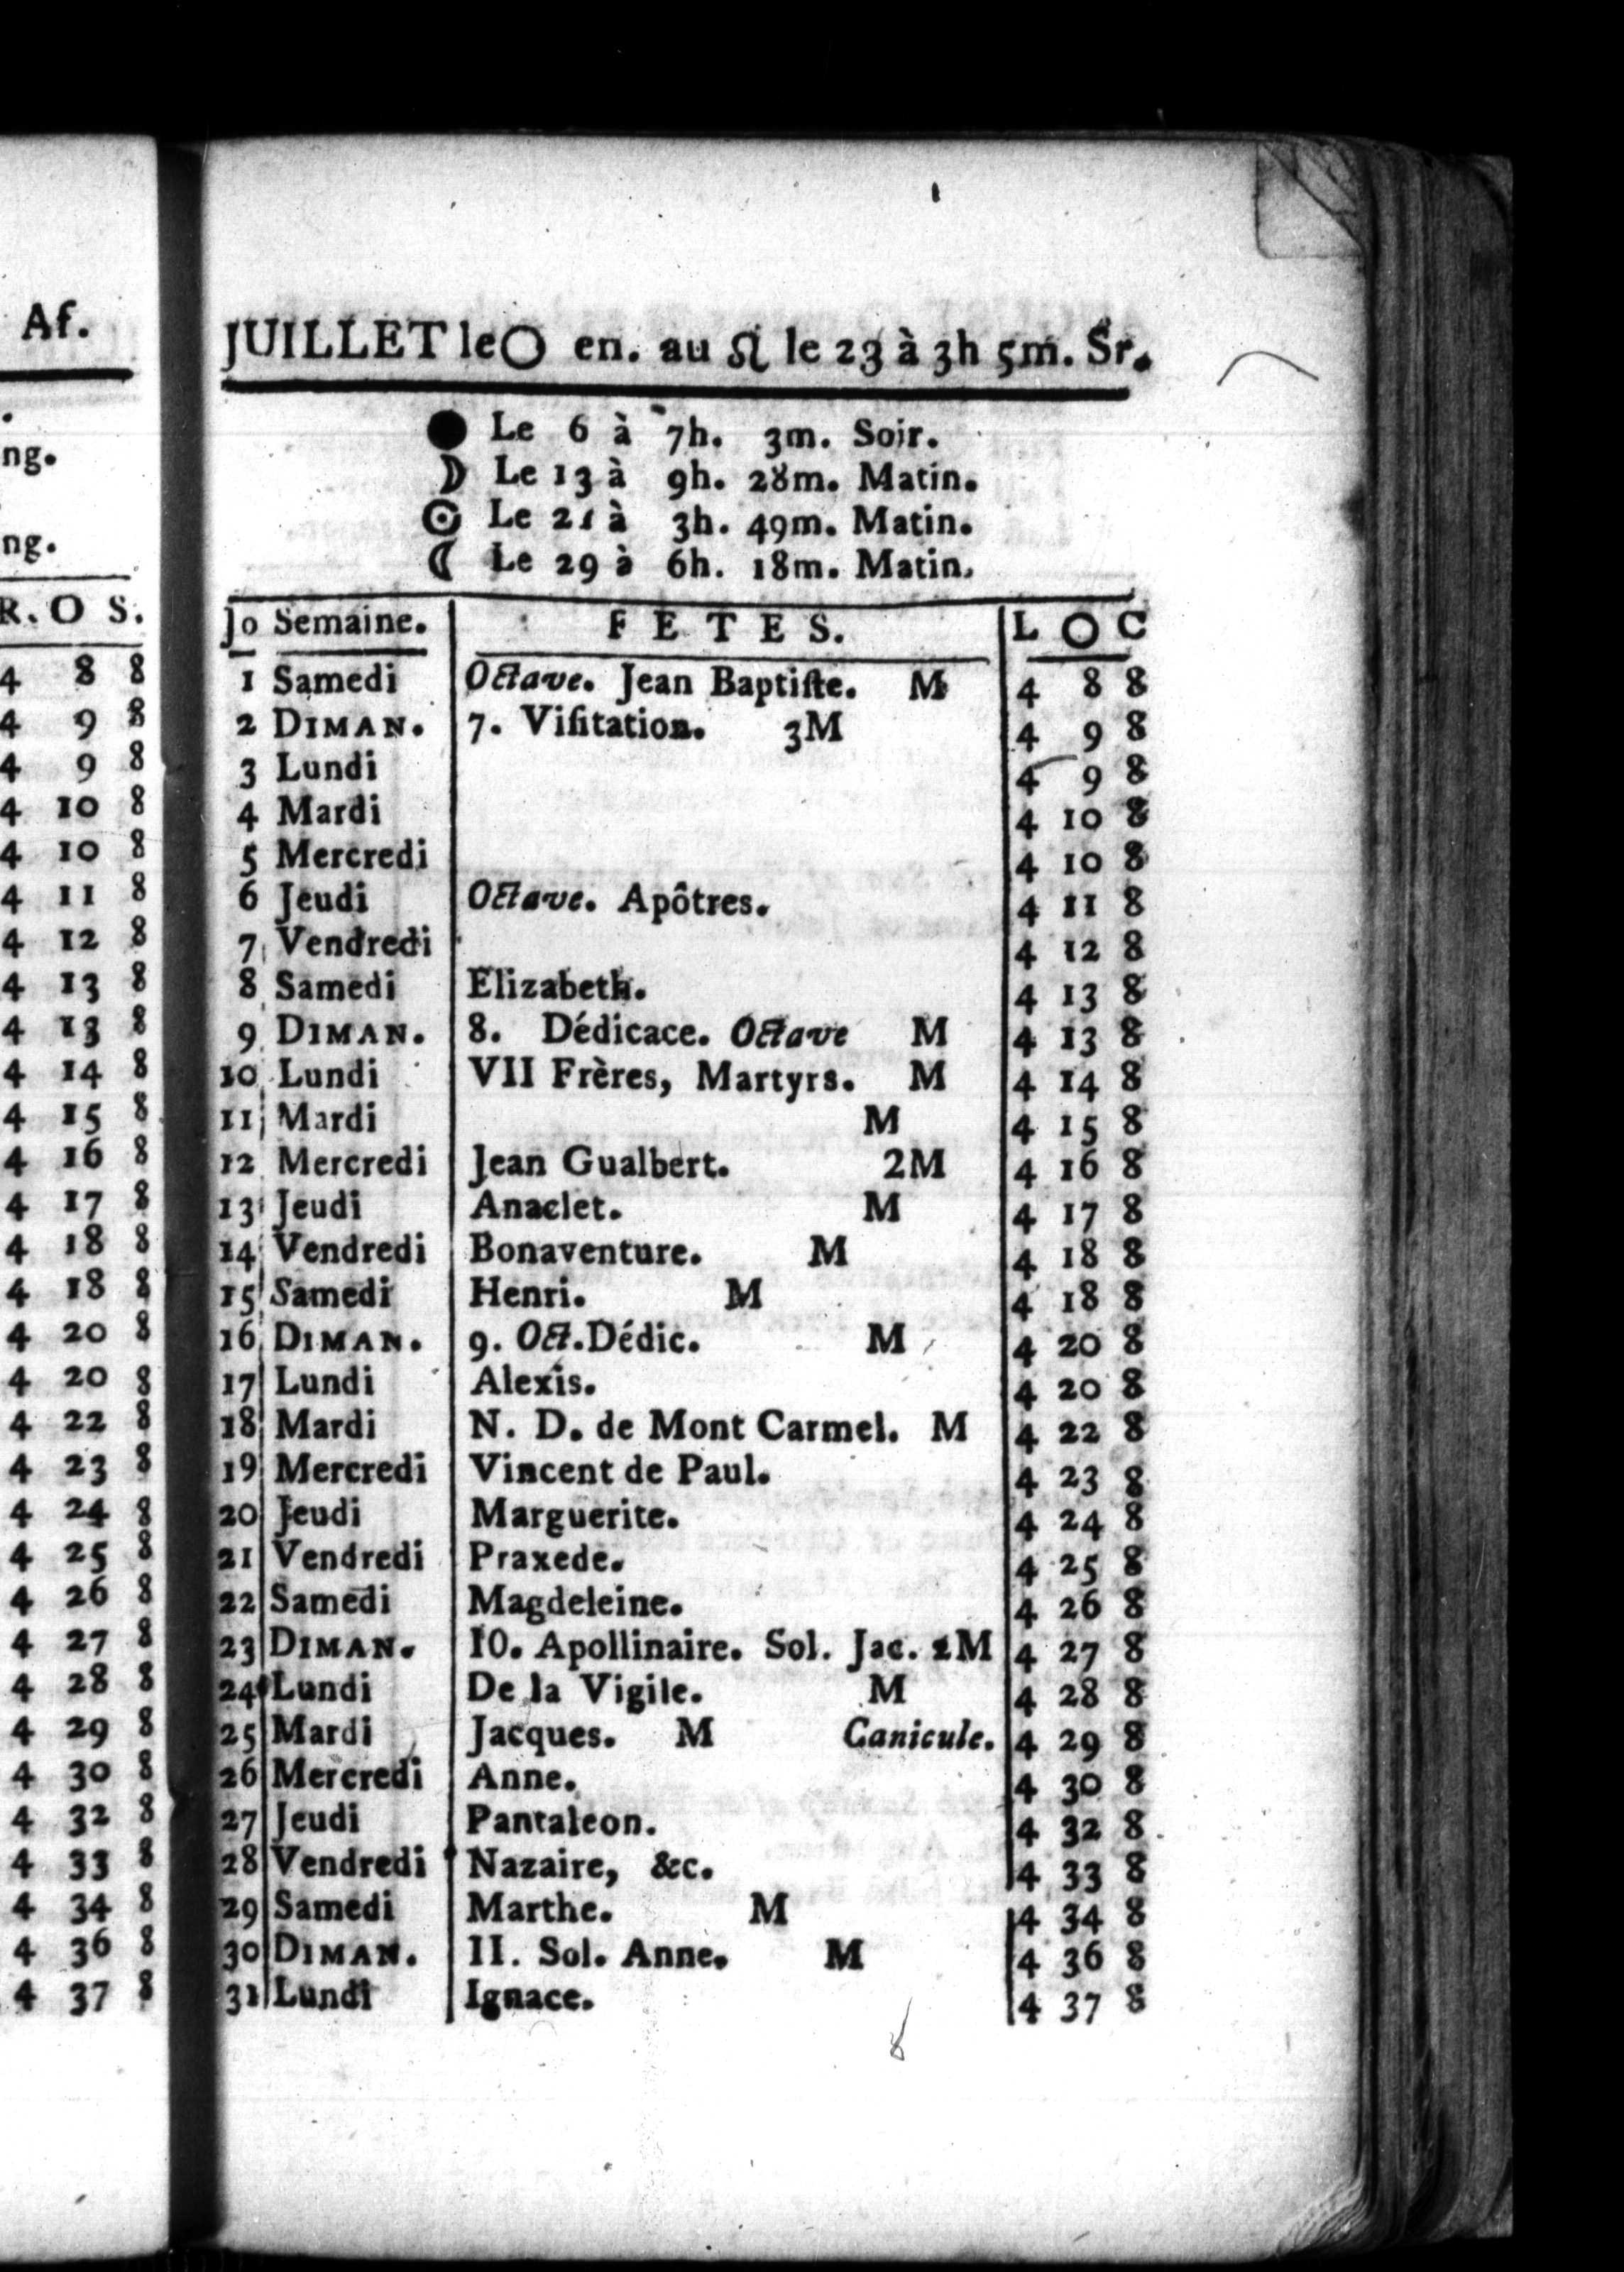 Af.
ng.
ng.
R. O S.
4 8 8
4 9 8
4 9 8
4 10 8
4 10 8
4 11 8
4 12 8
4 13 8
4 13 8
4 14 8
4 15 8
4 16 8
4 17 8
4 18 8
4 18 8
4 20 8
4 20 8
4 22 8
4 23 8
4 24 8
4 25 8
4 26 8
4 27 8
4 28 8
4 29 8
4 30 8
4 32 8
4 33 8
4 34 8
4 36 8
4 37 8
JUILLET le○ en. au ♌ le 23 à 3h 5m. Sr.
● Le 6 à 7h. 3m. Soir.
☽ Le 13 à 9h. 28m. Matin.
☉ Le 21 à 3h. 49m. Matin.
☾ Le 29 à 6h. 18m. Matin.
Jo Semaine. FETES. L O C
1 Samedi Octave. Jean Baptiſte. M 4 8 8
2 DIMAN. 7. Viſitation. 3M 4 9 8
3 Lundi 4 9 8
4 Mardi 4 10 8
5 Mercredi 4 10 8
6 Jeudi Octave. Apôtres. 4 11 8
7 Vendredi 4 12 8
8 Samedi Elizabeth. 4 13 8
9 DIMAN. 8. Dédicace. Octave M 4 13 8
10 Lundi VII Frères, Martyrs. M 4 14 8
11 Mardi M 4 15 8
12 Mercredi Jean Gualbert. 2M 4 16 8
13 Jeudi Anaclet. M 4 17 8
14 Vendredi Bonaventure. M 4 18 8
15 Samedi Henri. M 4 18 8
16 DIMAN. 9. Oct. Dédic. M 4 20 8
17 Lundi Alexis. 4 20 8
18 Mardi N. D. de Mont Carmel. M 4 22 8
19 Mercredi Vincent de Paul. 4 23 8
20 Jeudi Marguerite. 4 24 8
21 Vendredi Praxede. 4 25 8
22 Samedi Magdeleine. 4 26 8
23 DIMAN. 10. Apollinaire. Sol. Jac. 2M 4 27 8
24 Lundi De la Vigile. M 4 28 8
25 Mardi Jacques. M Canicule. 4 29 8
26 Mercredi Anne. 4 30 8
27 Jeudi Pantaleon. 4 32 8
28 Vendredi Nazaire, &c. 4 33 8
29 Samedi Marthe. M 4 34 8
30 DIMAN. 11. Sol. Anne. M 4 36 8
31 Lundi Ignace. 4 37 8
8